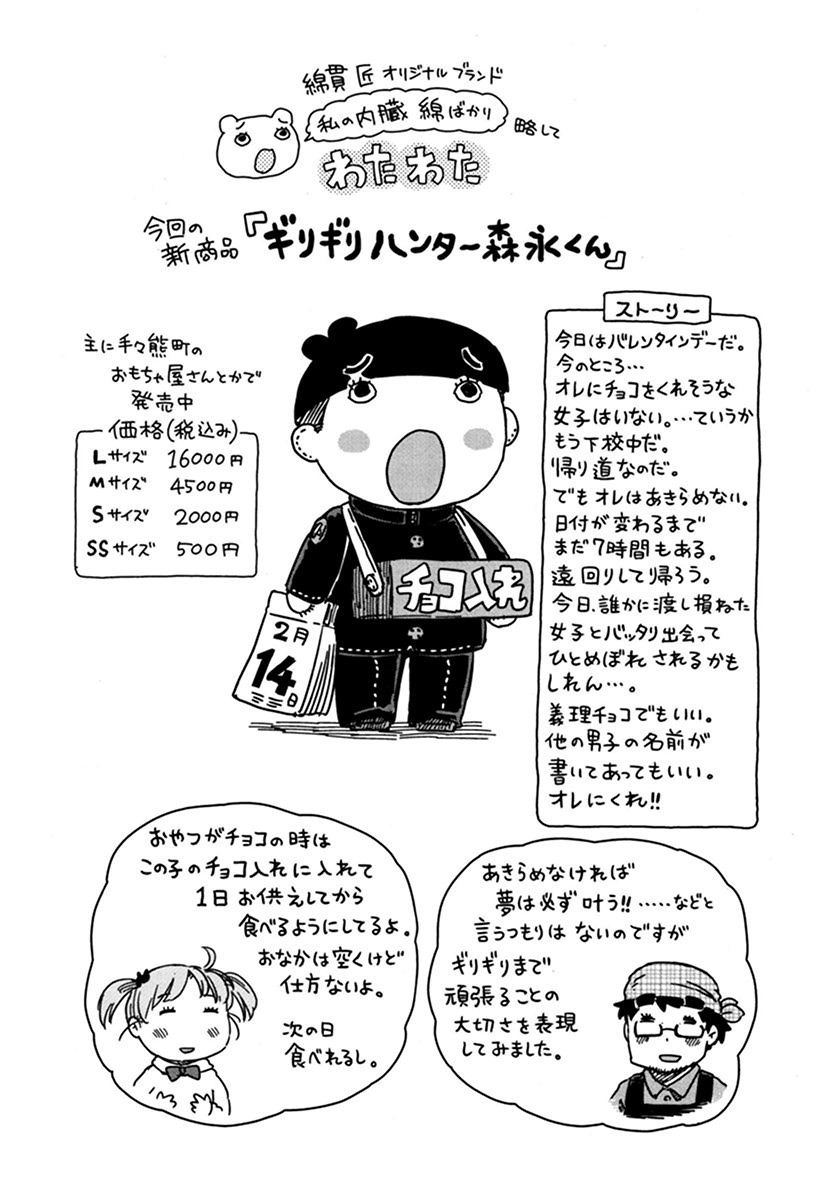 綿貫 匠 オリジナルブランド
私の内臓 綿ばかり
略して
わたわた
今回の
新商品
『ギリギリハンター森永くん』
主に手々熊町の
おもちゃ屋さんとかで
発売中
価格(税込み)
Lサイズ 16000円
Mサイズ 4500円
Sサイズ 2000円
SSサイズ 500円
チョコ入れ
2月
14
日
ストーリー
今日はバレンタインデーだ。
今のところ…
オレにチョコをくれそうな
女子はいない。…ていうか
もう下校中だ。
帰り道なのだ。
でもオレはあきらめない。
日付が変わるまで
まだ7時間もある。
遠回りして帰ろう。
今日、誰かに渡し損ねた
女子とバッタリ出会って
ひとめぼれされるかも
しれん…。
義理チョコでもいい。
他の男子の名前が
書いてあってもいい。
オレにくれ!!
おやつがチョコの時は
この子のチョコ入れに入れて
1日お供えしてから
食べるようにしてるよ。
おなかは空くけど
仕方ないよ。
次の日
食べれるし。
あきらめなければ
夢は必ず叶う!!……などと
言うつもりはないのですが
ギリギリまで
頑張ることの
大切さを表現
してみました。